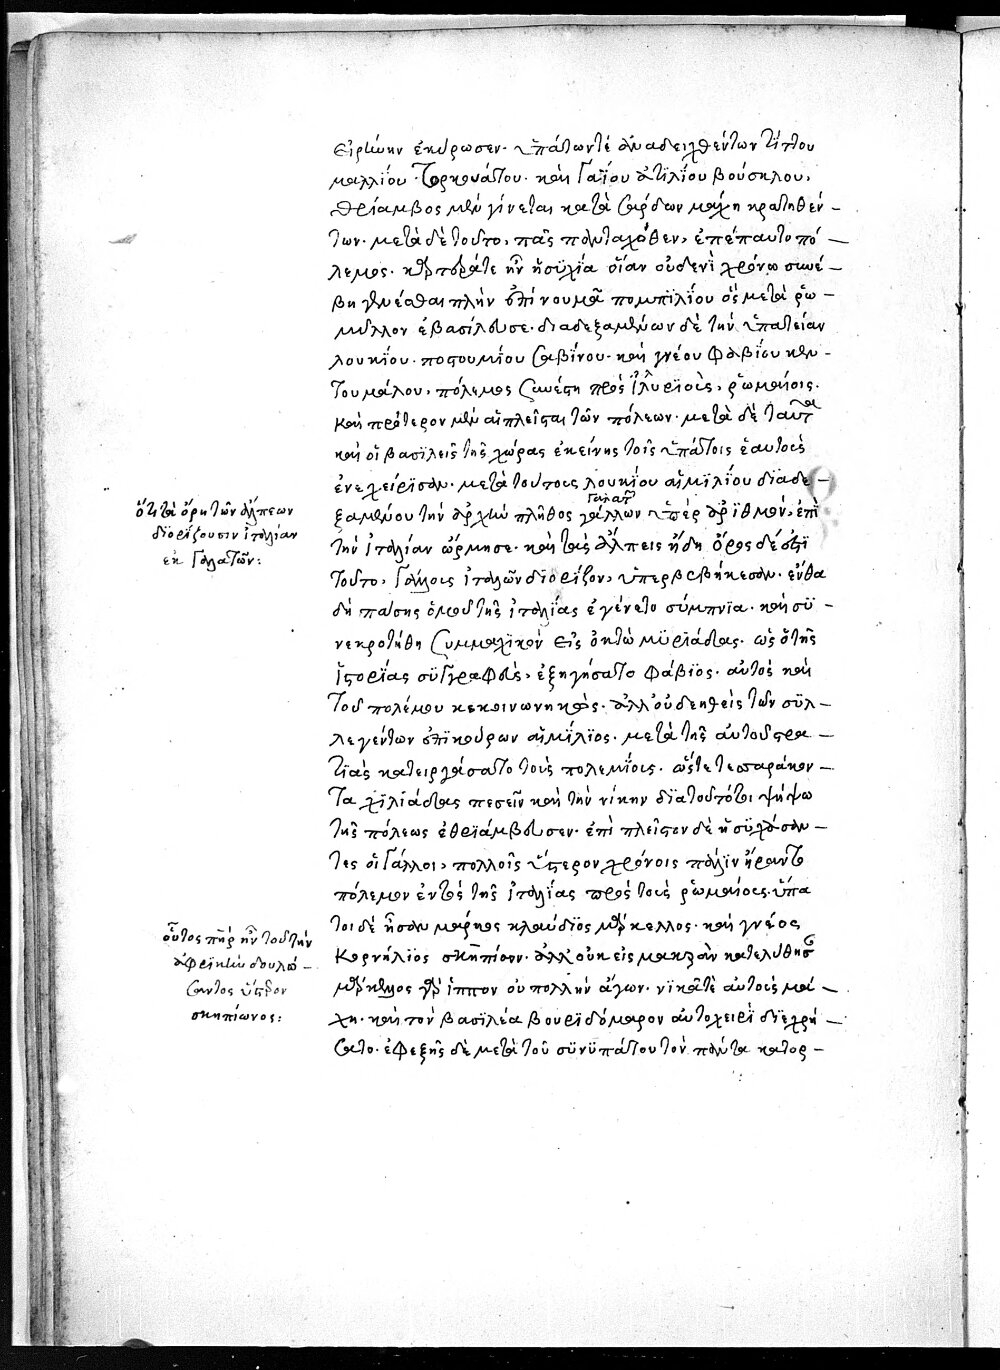 εἰρήνην ἐκύρωσεν. ὑπάτων τὲ ἀναδειχθέντων τίτου
μαλλίου τορκουάτου. καὶ Γαΐου ἀτιλίου βούσκλου,
θρίαμβος μὲν γίνεται κατὰ σάρδων μάχη κρατηθέν –
των. μετὰ δὲ τοῦτο, πᾶς πανταχόθεν, ἐπέπαυτο πό –
λεμος. καὶ τοσάτε ἦν ἡσυχία οἵαν οὐδενὶ χρόνω συνέ –
βη γενέσθαι πλὴν ἐπὶ νουμᾶ πομπιλίου ὃς μετὰ ῥω –
μύλλον ἐβασίλευσε. διαδεξαμένων δὲ τὴν ὑπατείαν
λουκίου. ποστουμίου σαβίνου. καὶ γνέου φαβίου κεν –
τουμάλου, πόλεμος ξυνέστη πρὸς ἰλλυριοὺς, ῥωμαίοις.
καὶ πρότερον μὲν αἱ πλεῖσται τῶν πόλεων. μετὰ δὲ ταῦτα
καὶ οἱ βασιλεῖς τῆς χώρας ἐκείνης τοῖς ὑπάτοις ἑαυτοὺς
ἐνεχείρισαν. μετὰ τούτους λουκίου αἰμιλίου διαδε –
Γαλατ
ξαμένου τὴν ἀρχὴν πλῆθος γάλλων ὑπὲρ ἀριθμὸν, ἐπὶ
τὴν ἰταλίαν ὥρμησε. καὶ τὰς ἄλπεις ἤδη ὄρος δέ ἐστι
τοῦτο, Γάλλοις ἰταλῶν διορίζον, ὑπερβεβήκεσαν. ἔνθα
δὴ πάσης ὁμοῦ τῆς ἰταλίας ἐγένετο σύμπνια. καὶ συ –
νεκροτήθη συμμαχικὸν εἰς ὀκτὼ μυριάδας. ὡς ὁ τῆς
ἱστορίας συγγραφεὺς, ἐξηγήσατο φάβιος. αὐτὸς καὶ
τοῦ πολέμου κεκοινωνηκὼς. ἀλλ' οὐ δεηθεὶς τῶν συλ –
λεγέντων ἐπικούρων αἰμίλιος. μετὰ τῆς αὐτοῦ στρα –
τιᾶς κατειργάσατο τοὺς πολεμίους. ὥστε τεσσαράκον –
τα χιλιάδας πεσεῖν καὶ τὴν νίκην διὰ τοῦτό τι ψήφω
τῆς πόλεως ἐθριάμβευσεν. ἐπὶ πλεῖστον δὲ ἡσυχάσαν –
τες οἱ Γάλλοι, πολλοῖς ὕστερον χρόνοις πάλιν ἤραντο
πόλεμον ἐντὸς τῆς ἰταλίας πρὸς τοὺς ῥωμαίους. ὕπα
τοι δὲ ἦσαν μάρκος κλαύδιος μάρκελλος. καὶ γνέος
Κορνήλιος σκηπίων. ἀλλ' οὐκ εἰς μακρὰν κατελύθησαν
μάρκελλος γὰρ ἵππον οὐ πολλὴν ἄγων. νικᾶτε αὐτοὺς μά –
χη. καὶ τὸν βασιλέα βουριδόμαρον αὐτοχειρὶ διεχρή –
σατο. ἐφεξῆς δὲ μετὰ τοῦ συνυπάτου τὸν πάντα κατορ –
ὅτι τὰ ὄρη τῶν ἄλπεων
διορίζουσιν ἰταλίαν
ἐκ Γαλατῶν:
οὗτος πῆρ ἦν τοῦ τὴν
ἀφρικὴν δουλώ –
σαντος ὕστερον
σκηπίωνος: